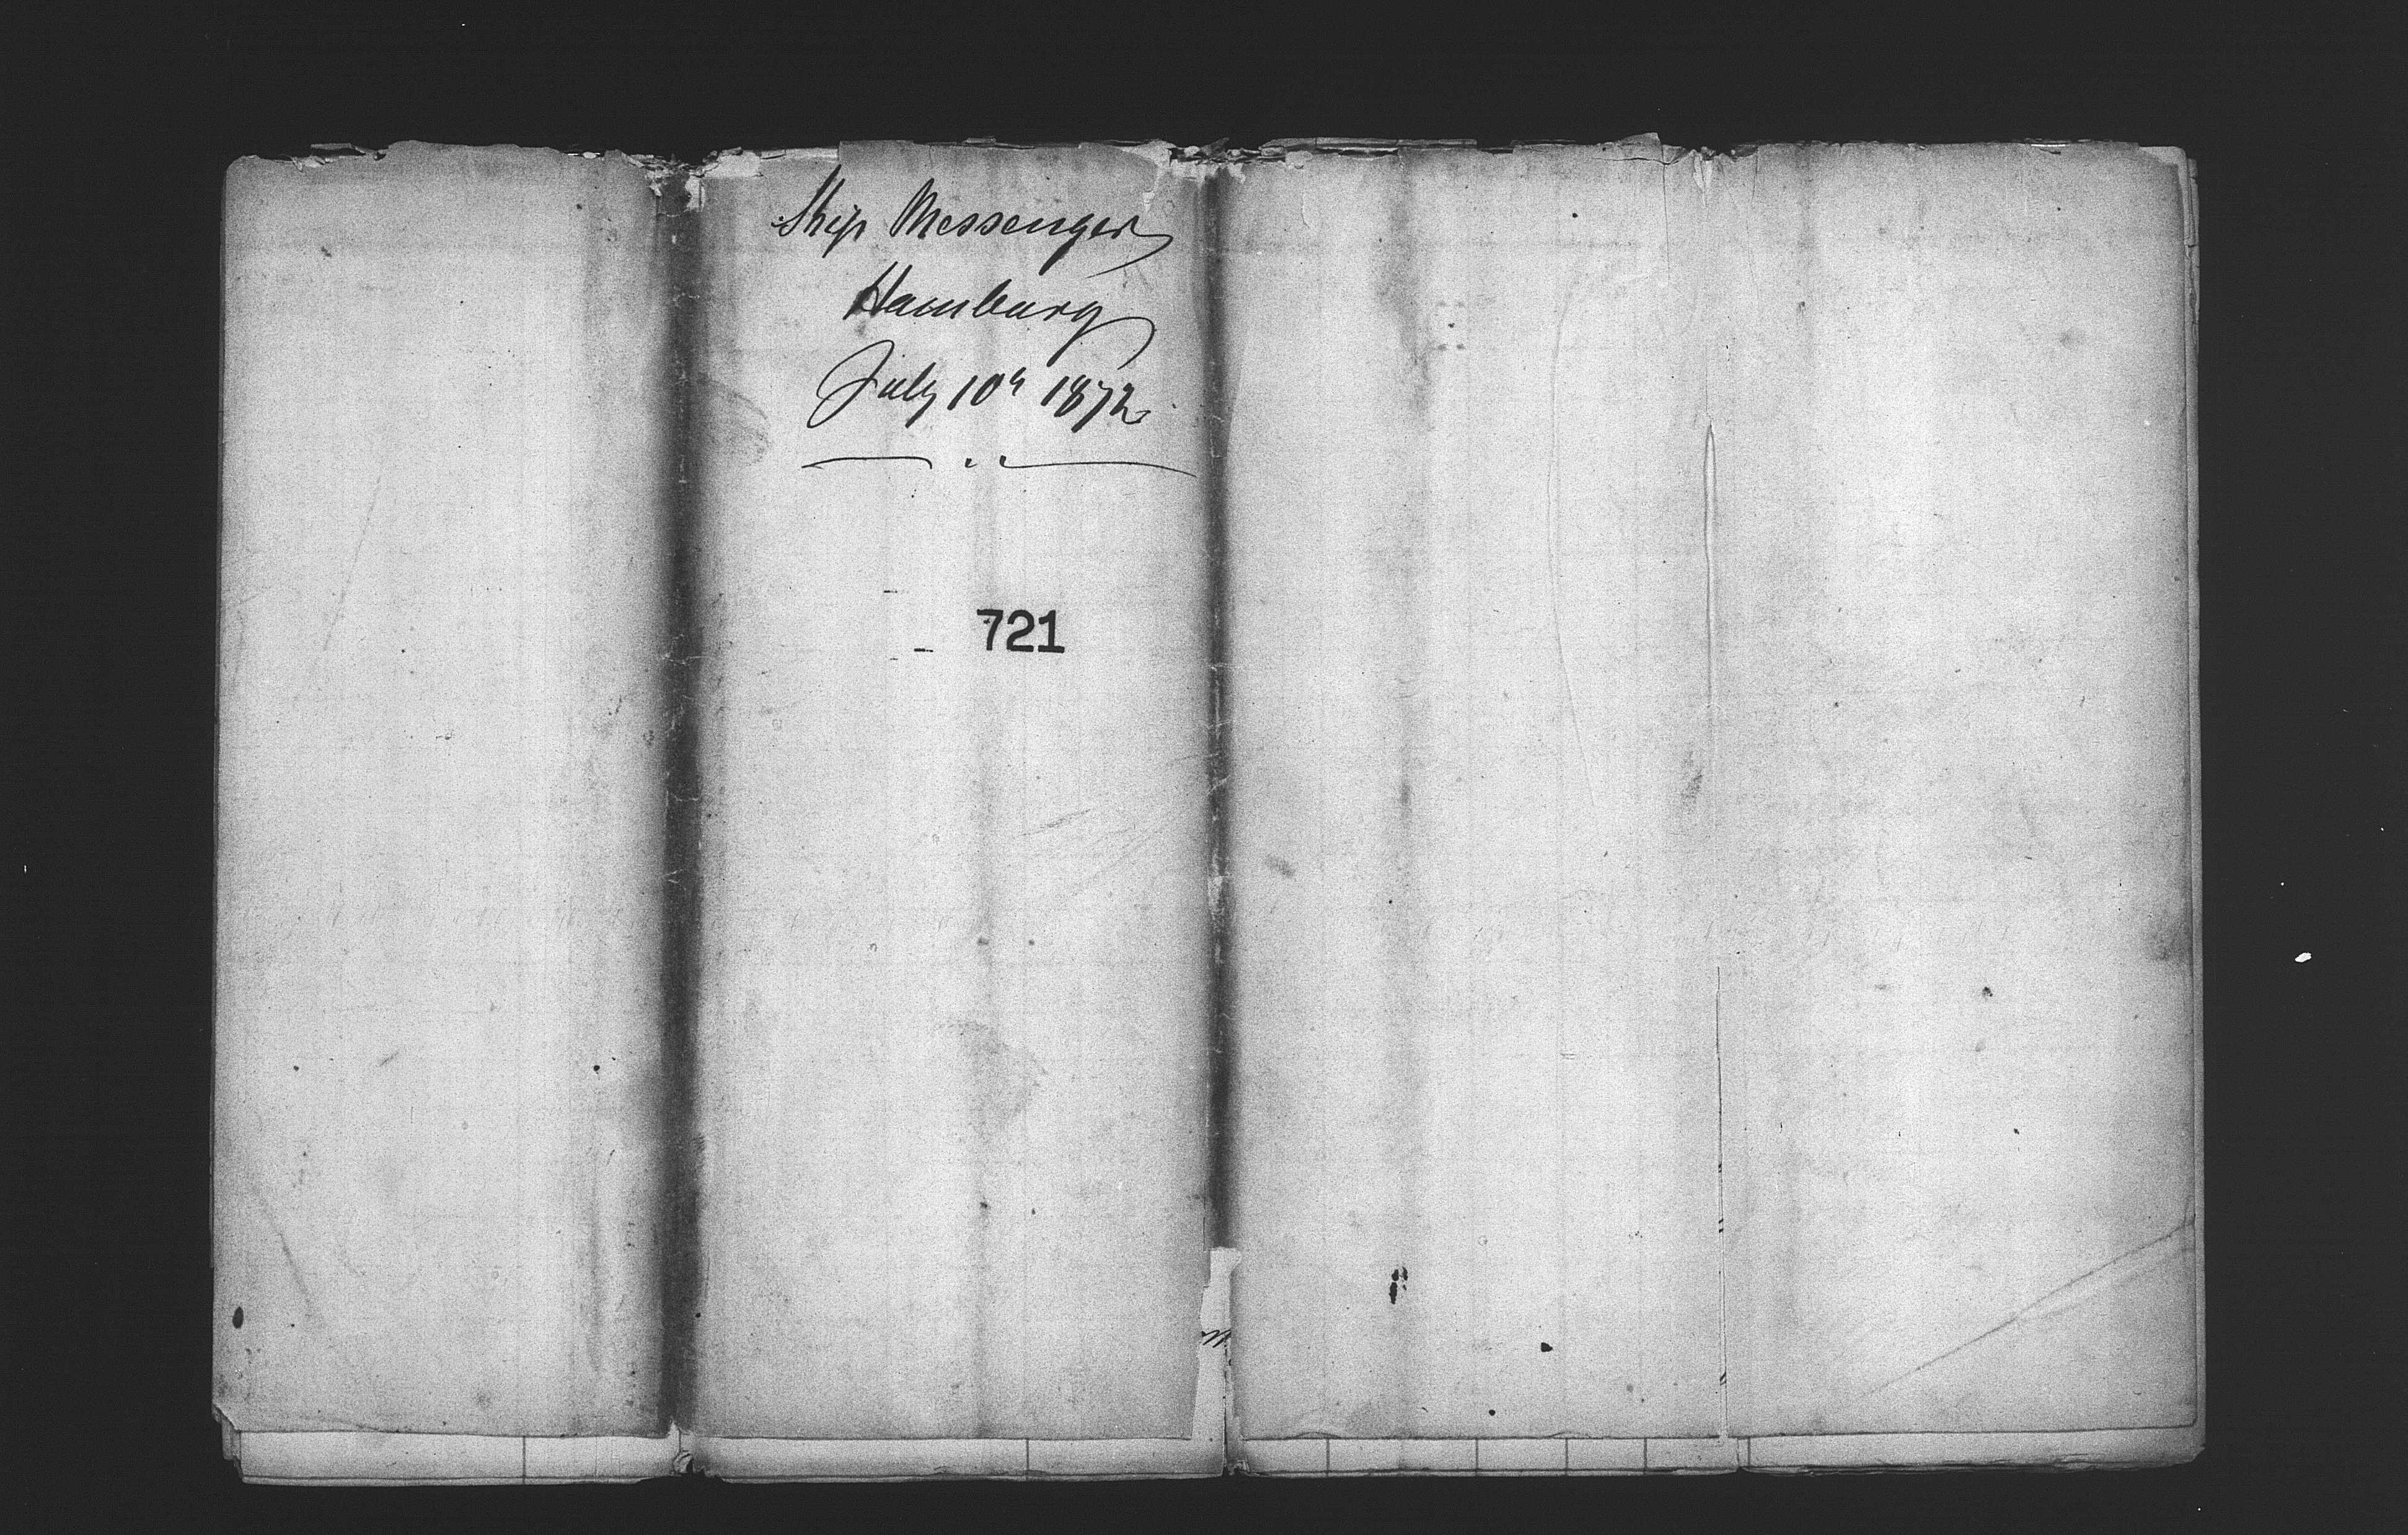 Ship Messenger
Hamburg
July 10th 1872
721